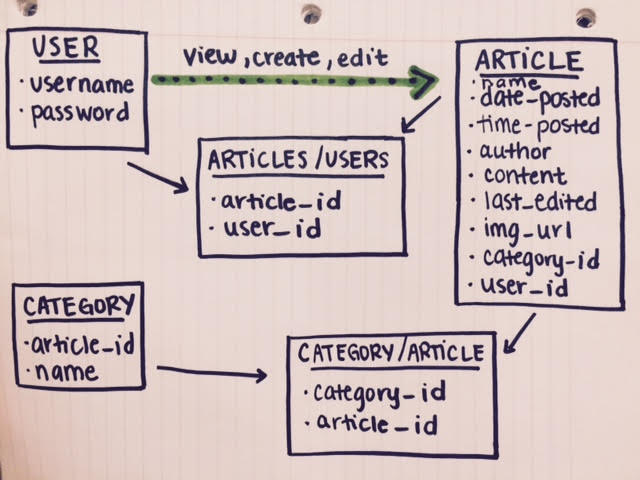 USER
· username
· password
view, create, edit
ARTICLE
· name
· date_posted
· time-posted
· author
· content
· last_edited
· img_url
· category-id
· user_id
ARTICLES/USERS
· article_id
· user_id
CATEGORY
· article_id
· name
CATEGORY/ARTICLE
· category-id
· article_id